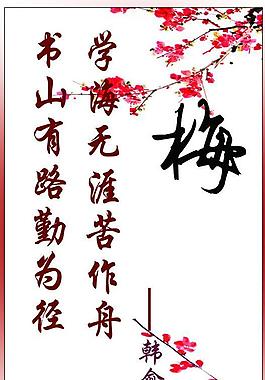 梅
学海无涯苦作舟
书山有路勤为径
——韩愈